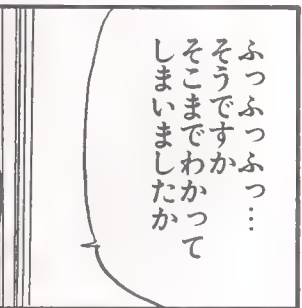 ふっふっふっ…
そうですか
そこまでわかって
しまいましたか